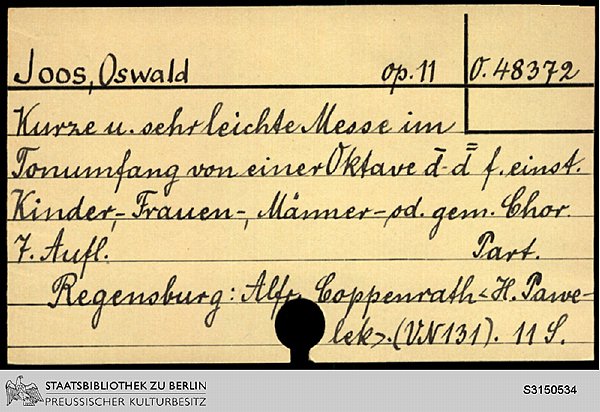 Joos, Oswald op. 11 O. 48372
Kurze u. sehr leichte Messe im
Tonumfang von einer Oktave d̄-d̿ f. einst.
Kinder-, Frauen-, Männer- od. gem. Chor.
7. Aufl. Part.
Regensburg: Alfr. Coppenrath <H. Pawe-
lek>. (VN 131). 11 S.
STAATSBIBLIOTHEK ZU BERLIN
PREUSSISCHER KULTURBESITZ
S3150534